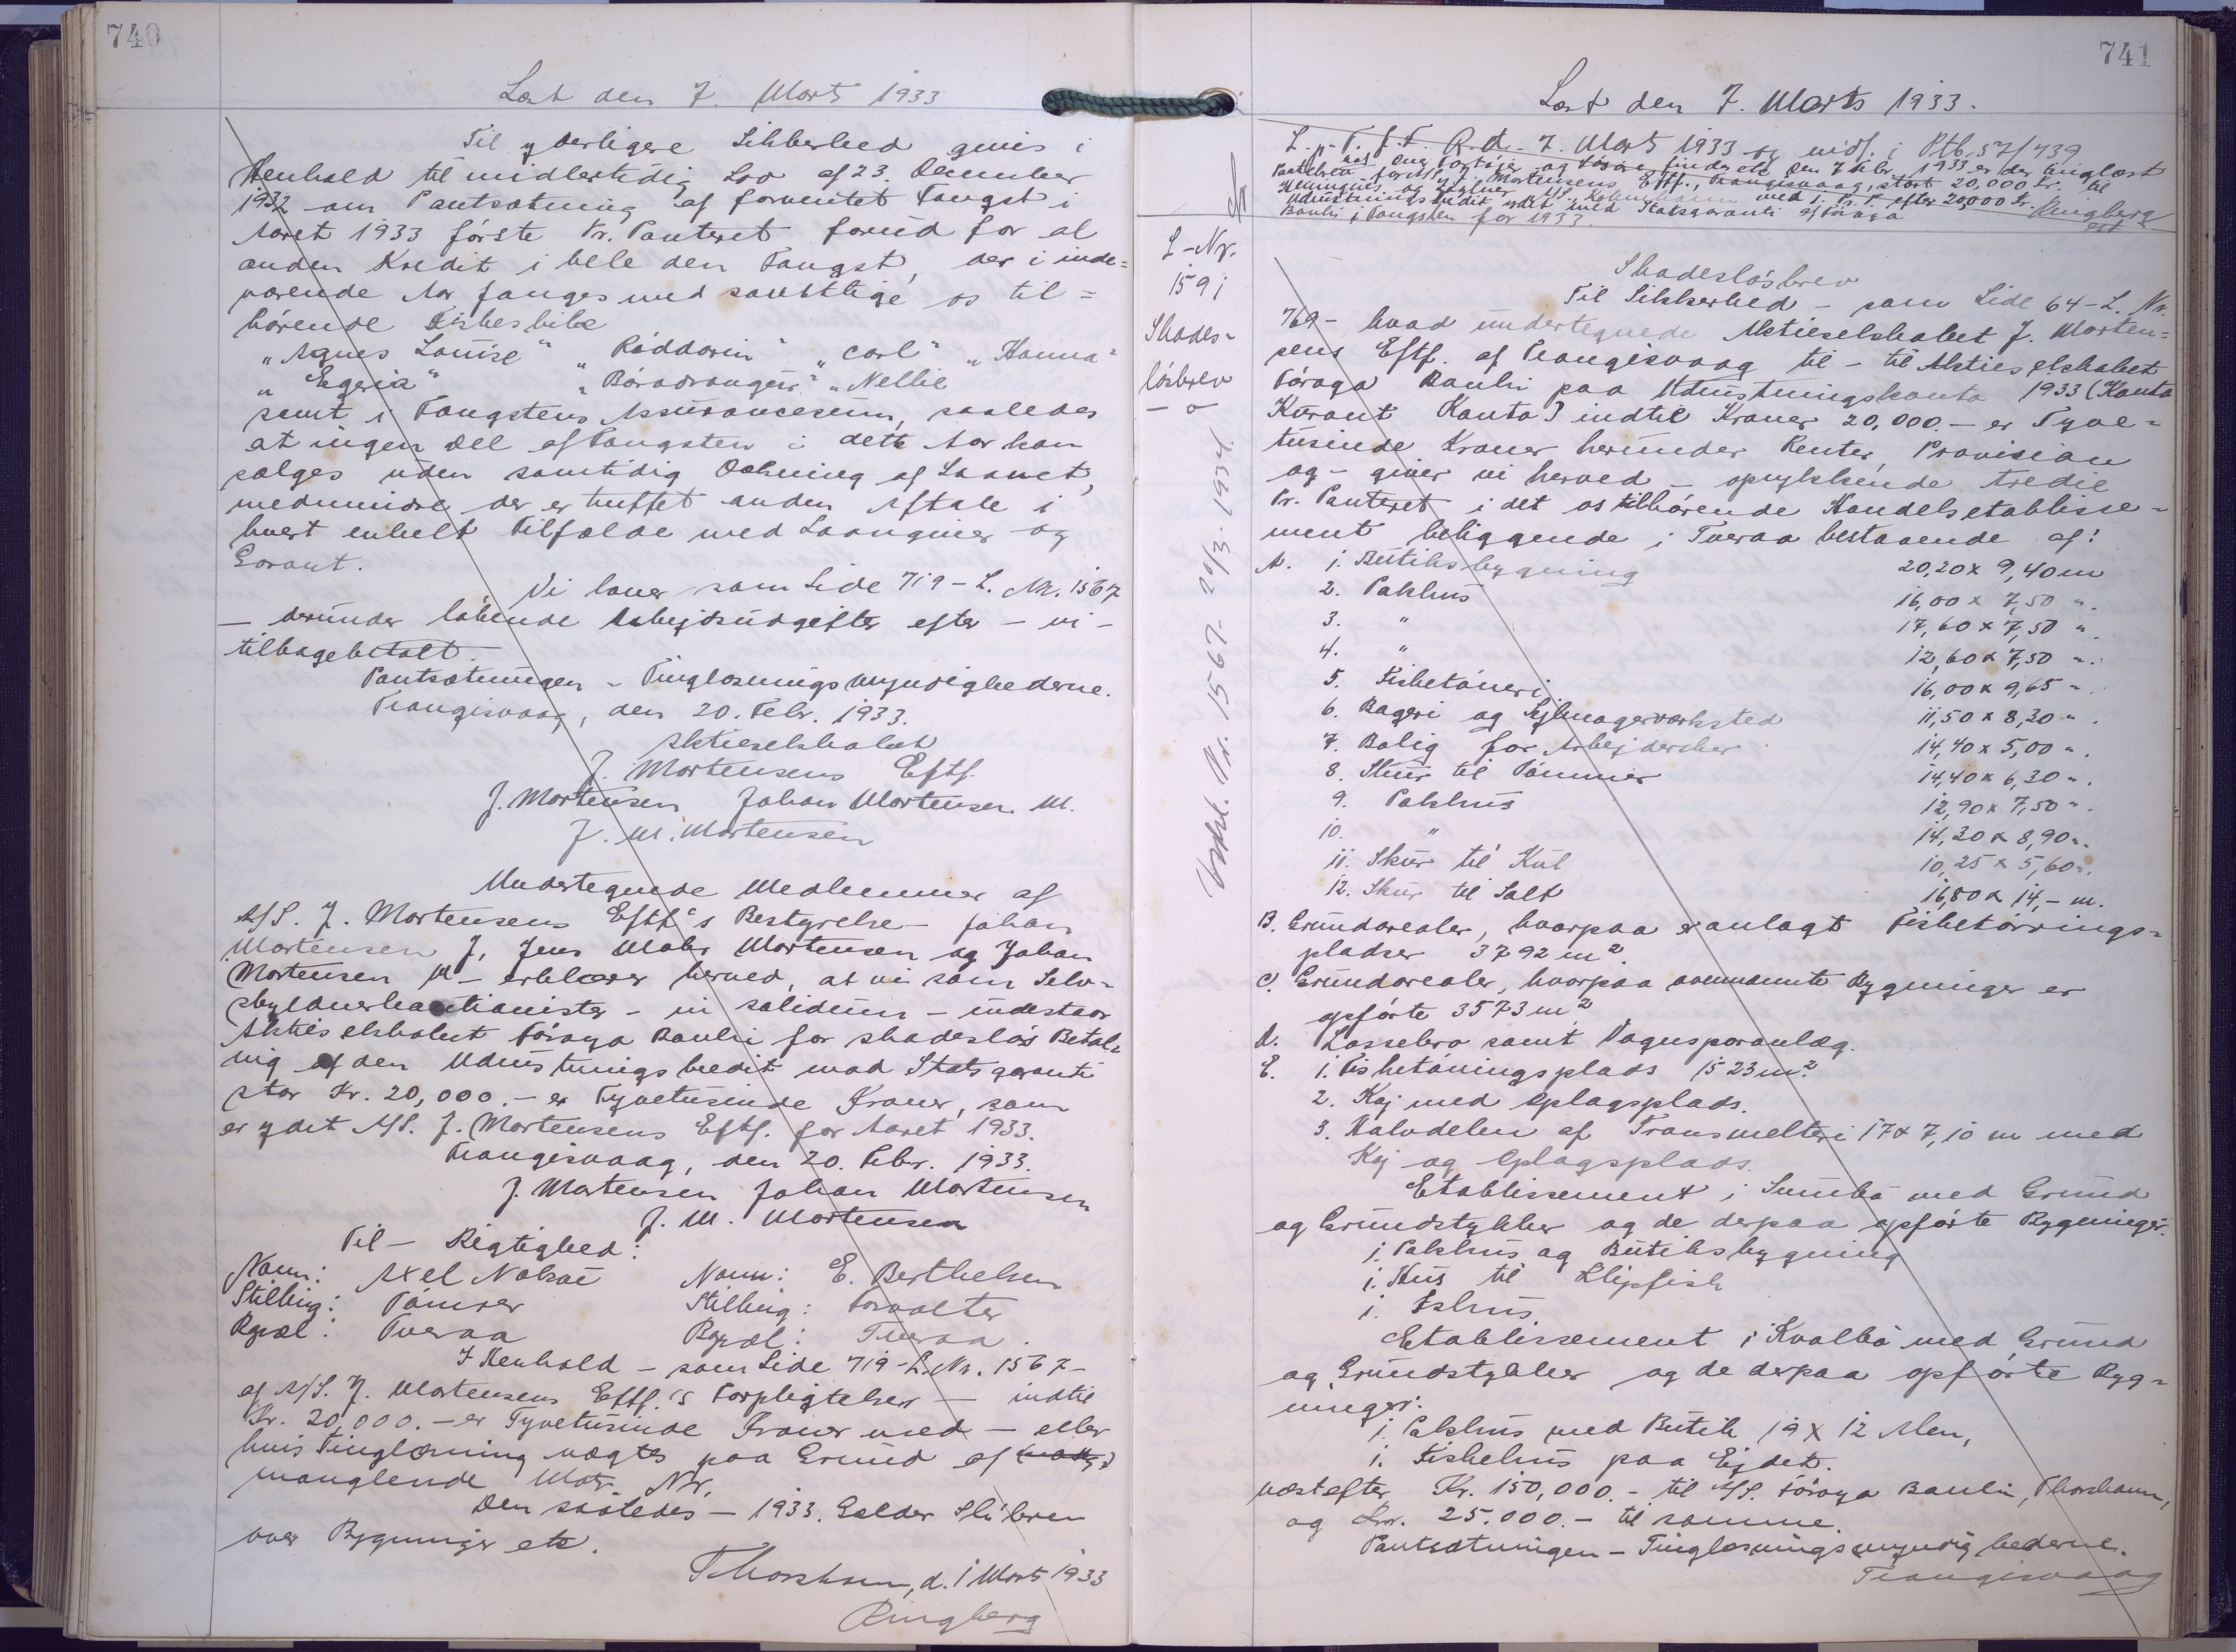 740
Læst den 7. Marts 1933
Til yderligere Sikkerhed gives i
Henhold til midlertidig Lov af 23. December
1932 om Pantsætning af forventet Fangst i
Aaret 1933 første Pr. Panteret forud for al
anden Kredit i hele den Fangst, der i inde=
værende Aar fanges med samtlige os til=
hørende Fiskeskibe
"Agnes Louise" "Røddarin" "Carl" "Hanna"
"Egeria" "Báradrangur" "Nellie"
samt i Fangstens Assurancesum, saaledes
at ingen Del af Fangsten i dette Aar kan
sælges uden samtidig Dækning af Laanet,
medmindre der er truffet anden Aftale i
hvert enkelt Tilfælde med Laangiver og
Garant.
Vi lover som Side 719 - L. Nr. 1567
- derunder løbende Arbejdsudgifter efter - vi -
tilbagebetalt.
Pantsætningen - Tinglæsningsmyndighederne.
Trangisvaag, den 20. Febr. 1933.
Aktieselskabet
J. Mortensens Eftf.
J. Mortensen Johan Mortensen M.
J. M. Mortensen
Undertegnede Medlemmer af
A/S. J. Mortensens Eftf's Bestyrelse - Johan
Mortensen J, Jens Mohr Mortensen og Johan
Mortensen M - erklærer herved, at vi som Selv-
skyldnerkautionister - in solidum - indestaar
Aktieselskabet Føroya Banki for skadesløs Betal=
ing af den Udrustningskredit mod Statsgaranti
stor Kr. 20,000.- er Tyvetusinde Kroner, som
er ydet A/S. J. Mortensens Eftf. for Aaret 1933.
Trangisvaag, den 20. Febr. 1933.
J. Mortensen Johan Mortensen
J. M. Mortensen
Til - Rigtighed:
Navn: Axel Nolsøe Navn: E. Berthelsen
Stilling: Tømrer Stilling: Forvalter
Bopæl: Tveraa Bopæl: Tveraa.
I Henhold - som Side 719 - L. Nr. 1567 -
af A/S. J. Mortensens Eftf.'s Forpligtelser - indtil
Kr. 20,000.- er Tyvetusinde Kroner med - eller
hvis Tinglæsning nægtes paa Grund af
manglende Matr. Nr.
Den saaledes - 1933. Gælder Sk'brev
over Bygninger etc.
Thorshavn, d. 1 Marts 1933
Ringberg
L-Nr.
1591
Skades-
løsbrev
- o -
Udsl. Nr. 1567- 20/3 1934.
741
Læst den 7. Marts 1933.
L. p. T. f. F. R. d. 7. Marts 1933 og indf. i Ptb. 57/739
Pantebrev for A/S. J. Mortensens Eftf., Trangisvaag, stort 20,000 Kr. til
Udrustningskredit ydet med Statsgaranti af Føroya
Banki i Fangsten for 1933. Ringberg
Skadesløsbrev
Til Sikkerhed - som Side 64 - L. Nr.
769 - hvad undertegnede Aktieselskabet J. Morten-
sens Eftf. af Trangisvaag til - til Aktieselskabet
Føroya Banki paa Udrustningskonto 1933 (Konto
Kurant Konto) indtil Kroner 20,000.- er Tyve-
tusinde Kroner herunder Renter, Provision
og - giver vi herved - oprykkende tredie
Pr. Panteret i det os tilhørende Handelsetablisse-
ment beliggende i Tveraa bestaaende af:
A. 1. Butiksbygning 20,20 x 9,40 m
2. Pakhus 16,00 x 7,50 ".
3. " 17,60 x 7,50 ".
4. " 12,60 x 7,50 ".
5. Fisketørreri 16,00 x 9,65 ".
6. Bageri og Sejlmagerværksted 11,50 x 8,30 ".
7. Bolig for Arbejdersker 14,40 x 5,00 ".
8. Skur til Tømmer 14,40 x 6,30 ".
9. Pakhus 12,90 x 7,50 ".
10. " 14,30 x 8,90 ".
11. Skur til Kul 10,25 x 5,60 ".
12. Skur til Salt 16,80 x 14,- m.
B. Grundarealer, hvorpaa er anlagt Fisketørrings-
pladser 3792 m².
C. Grundarealer, hvorpaa ovennævnte Bygninger er
opførte 3573 m²
D. Lossebro samt Vognsporanlæg.
E. 1. Fisketørringsplads 1523 m².
2. Kaj med Oplagsplads.
3. Halvdelen af Transmelteri 17 x 7,10 m med
Kaj og Oplagsplads.
Etablissement i Sumbø med Grund
og Grundstykker og de derpaa opførte Bygninger.
1. Pakhus og Butiksbygning
1. Hus til Klipfisk
1. Ishus
Etablissement i Kvalbø med Grund
og Grundstykker og de derpaa opførte Byg-
ninger:
1. Pakhus med Butik 19 x 12 Alen,
1. Fiskehus paa Ejdet.
næstefter Kr. 150,000.- til A/S. Føroya Banki, Thorshavn,
og Kr. 25.000.- til samme.
Pantsætningen - Tinglæsningsmyndighederne.
Trangisvaag